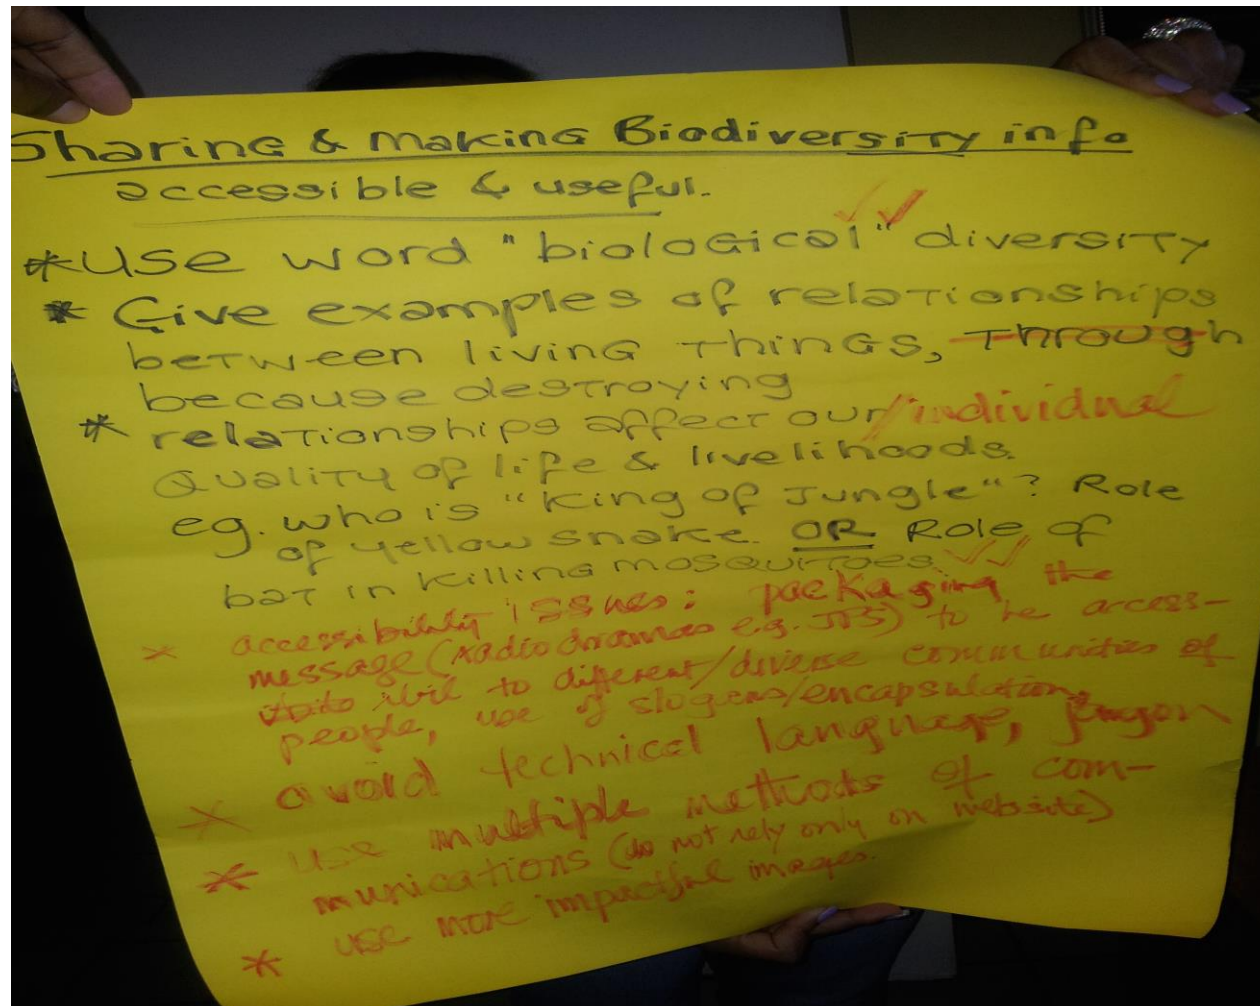 Sharing & making Biodiversity info
accessible & useful.
*Use word "biological" diversity
* Give examples of relationships
between living things, through
because destroying
* relationships affect our/individual
Quality of life & livelihoods.
eg. who is "King of Jungle"? Role
of yellow snake. OR Role of
bat in killing mosquitoes.
* accessibility issues: packaging the
message (radio dramas e.g. ) to be access-
ibil to different/diverse communities of
people, use of slogens/encapsulation,
* avoid technical language, jargon
* use multiple methods of com-
munications (do not rely only on website)
* use more impactful images.